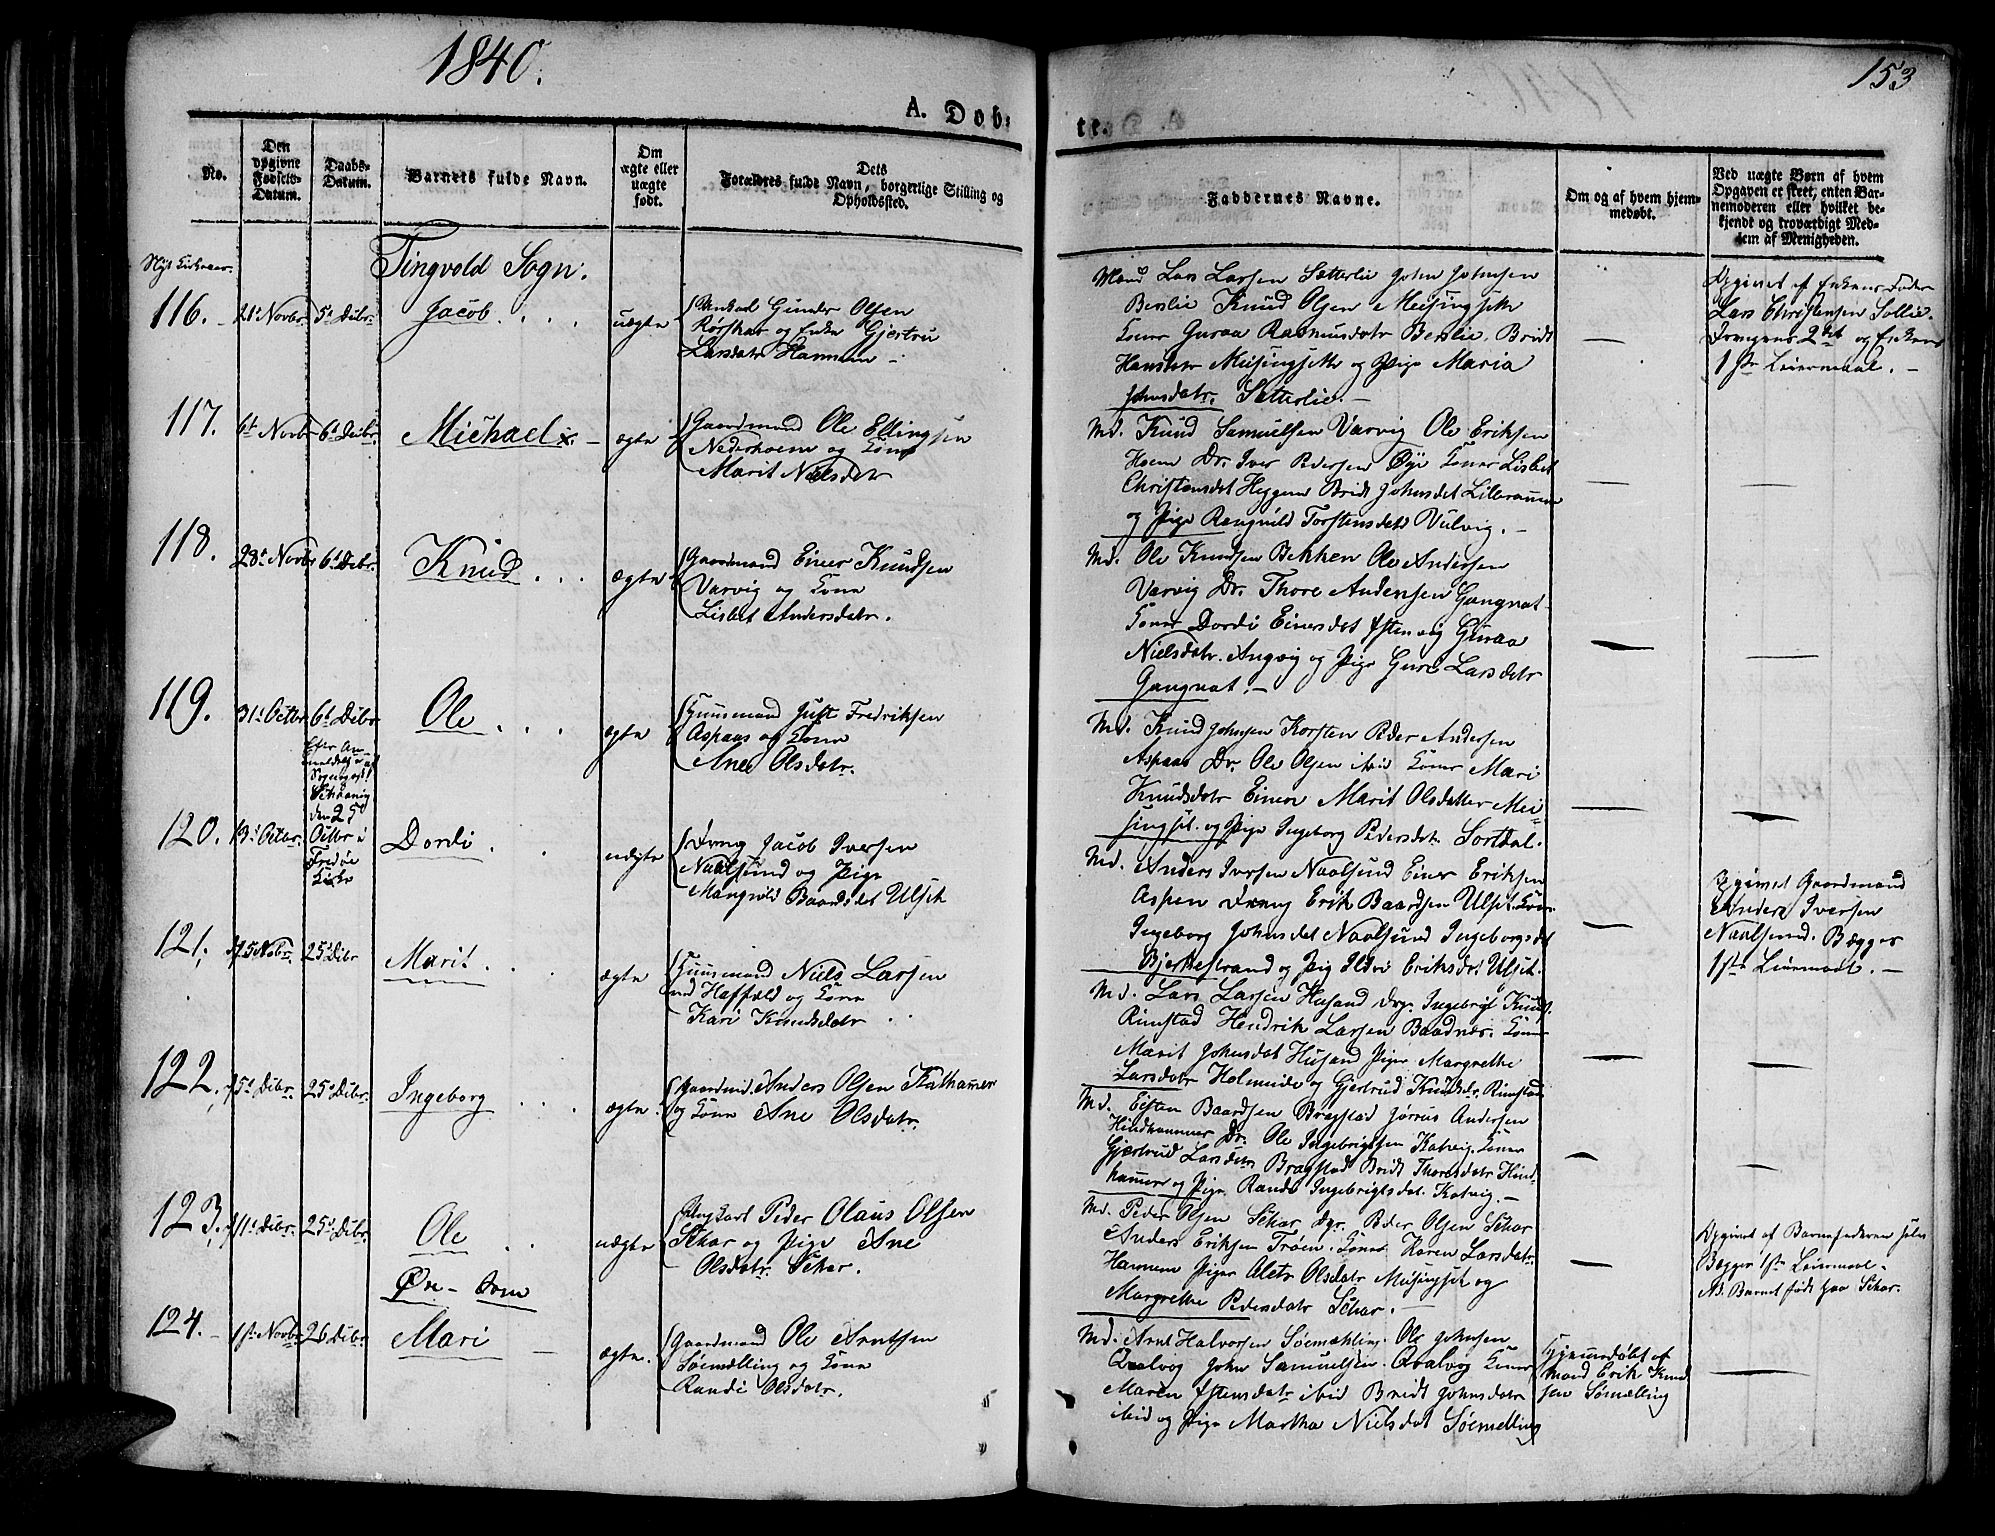 1840.
153
A. Døb-
te.
No.
Den opgivne Fødsels-Datum.
Daabs-Datum.
Barnets fulde Navn.
Om ægte eller uægte født.
Dets Forældres fulde Navn, borgerlige Stilling og Opholdssted.
Faddernes Navne.
Om og af hvem hjem-medøbt.
Ved uægte Børn af hvem Opgaven er skeet, enten Bar-nemoderen eller hvilket be-kjendt og troværdigt Med-lem af Menigheden.
Nyt Kirkeaar.
Tingvold Sogn.
116. 21de Novbr 5te Dcbr Jacob uægte
Gunder Olsen
Rørskar og Enke Gjertru
Larsdatr Hannem
Mænd Lars Larsen Sætterlie John Johnsen
Berslie Knud Olsen Meisingsetr
Koner Guraa Rasmusdatr Berslie. Bridt
Hansdatr Meisingsetr og Pige Maria
Johnsdatr. Sætterlie.
Opgivet af Enkens Fader
Lars Christensen Sollie.
Drengens 2det og Enkens
1ste Leiermaal.
117. 6te Novbr 6te Dcbr Michael ægte
Gaardmand Ole Ellingsen
Nederhoem og Kone
Marit Nielsdatr
Md. Knud Samuelsen Varvig Ole Eriksen
Hoem Dr. Iver Pedersen Øye Koner Lisbet
Christensdat Heggem Bridt Johnsdat Lilleraunen
og Pige Rangnild Torstensdatr Vulvig.
118. 28de Novbr 6te Dcbr Knud ægte
Gaardmand Einer Knudsen
Varvig og Kone
Lisbet Andersdatr.
Md. Ole Knudsen Bekken Ole Andersen
Varvig Dr. Thore Andersen Gangnat
Koner Dordi Einersdat Guraa
Nielsdatr. Angvig og Pige Guru Larsdatr
Gangnat.
119. 31te Octbr 6te Dcbr Ole ægte
Huusmand Just Fredriksen
Aspaas og Kone
Ane Olsdatr.
Md. Knud Johnsen Korsten Peder Andersen
Aspaas Dr. Ole Olsen ibid Koner Mari
Knudsdatr Einer Marit Olsdatter Mei-
singset. og Pige Ingeborg Pedersdatr Sortdal.
Efter An-
meldelse af
Sognepræst
Schaanig
den 25de
Octbr i
Fredøe
Kirke
120. 13de Octbr. Dordi uægte
Dreng Jacob Iversen
Naalsund og Pige
Mangnild Baardsdat Ulset
Md. Anders Iversen Naalsund Einer Eriksen
Aspen Dreng Erik Baardsen Ulset. Koner
Ingeborg Johnsdat Naalsund Ingeborg
Bjerkestrand og Pige Ildri Eriksdat Ulset.
Opgivet Gaardmand
Anders Iversen
Naalsund. Begges
1ste Leiermaal.
121. 25 Novbr. 25de Dcbr Marit ægte
Huusmand Niels Larsen
Haffæld og Kone
Kari Knudsdatr
Md. Lars Larsen Husand Drg. Ingebrigt Knuds.
Rimstad Hendrik Larsen Baadnes. Koner
Marit Johnsdat Husand Piger Margrethe
Larsdatr Holmeide og Gjertrud Knudsdr. Rimstad
122. 5te Dcbr. 25de Dcbr. Ingeborg ægte
Gaardmd. Anders Olsen
og Kone Ane Olsdatr.
Md. Esten Baardsen Bragstad Anders Andersen
Hindhammer Dr. Ole Ingebrigtsen Kalvig. Koner
Gjertrud Larsdatr Bragstad Bridt Thoresdatr Hind-
hammer og Pige Randi Ingebrigtsdat. Kalvig.
123. 11te Dcbr. 25de Dcbr. Ole uægte
Ungkarl Peder Olaus Olsen
Skar og Pige Ane
Olsdatr Skar.
Md. Peder Olsen Skar Dgr. Peder Olsen Skar
Anders Eriksen Trøen. Koner Karen Larsdatr
Hannem Piger Alet Olsdatr Meisingset og
Margrethe Pedersdatr Skar.
Opgivet af Barnefaderen selv
Begges 1ste Leiermaal
NB. Barnet født paa Skar.
Øre-Sogn
124. 1ste Novbr 26 Dcbr Mari ægte.
Gaardmand Ole Arntsen
Søemælling og Kone
Randi Olsdatr.
Md. Arnt Halvorsen Søemælling. Ole Johnsen
Qvalvog John Samuelsen. Qvalvog Koner
Maren Estensdatr ibid Bridt Johnsdatr
ibid og Pige Martha Nielsdat Søemelling
Hjemmedøbt af
Mand Erik Knud-
sen Sømælling